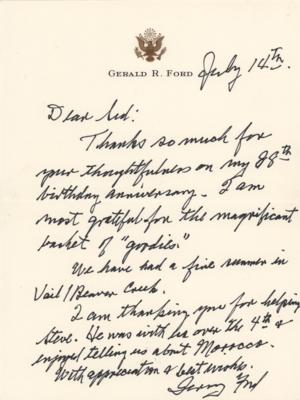 GERALD R. FORD
July 14th.
Dear Sid:
Thanks so much for
your thoughtfulness on my 88th
birthday anniversary. I am
most grateful for the magnificent
basket of "goodies."
We have had a fine summer in
Vail/Beaver Creek.
I am thanking you for helping
Steve. He was with us over the 4th &
enjoyed telling us about Morocco.
With appreciation & best wishes.
Jerry Ford